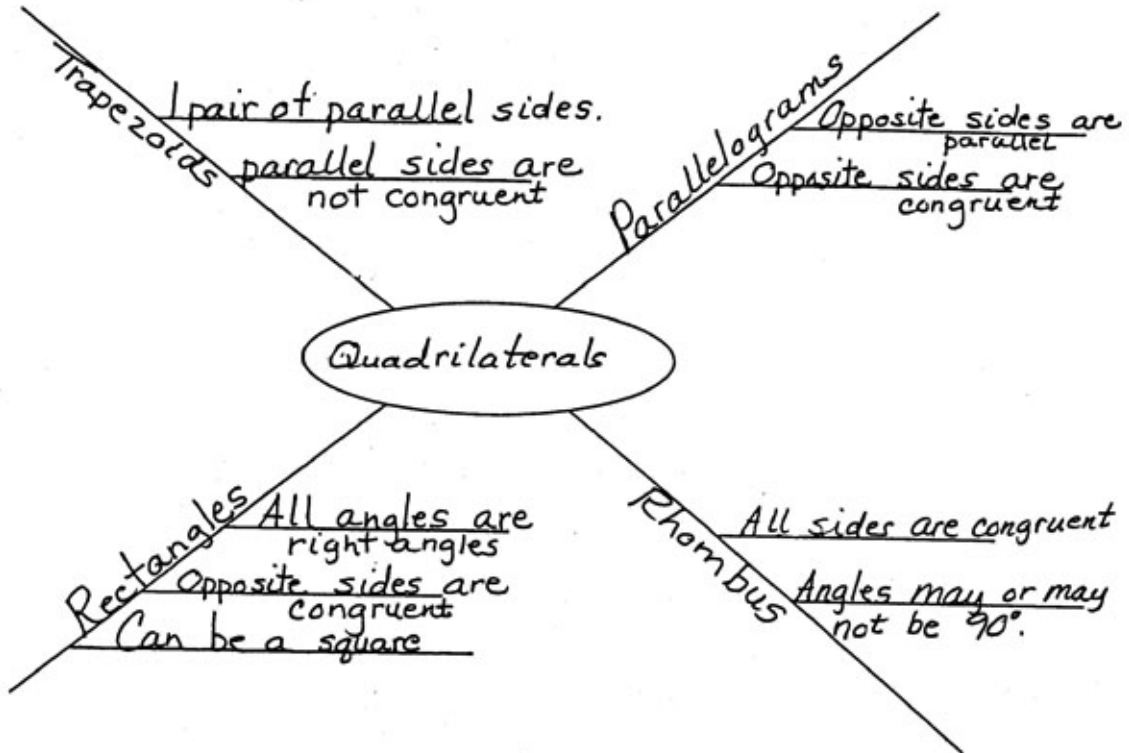 Trapezoids
1 pair of parallel sides.
parallel sides are
not congruent
Parallelograms
Opposite sides are
parallel
Opposite sides are
congruent
Quadrilaterals
Rectangles
All angles are
right angles
Opposite sides are
congruent
Can be a square
Rhombus
All sides are congruent
Angles may or may
not be 90°.